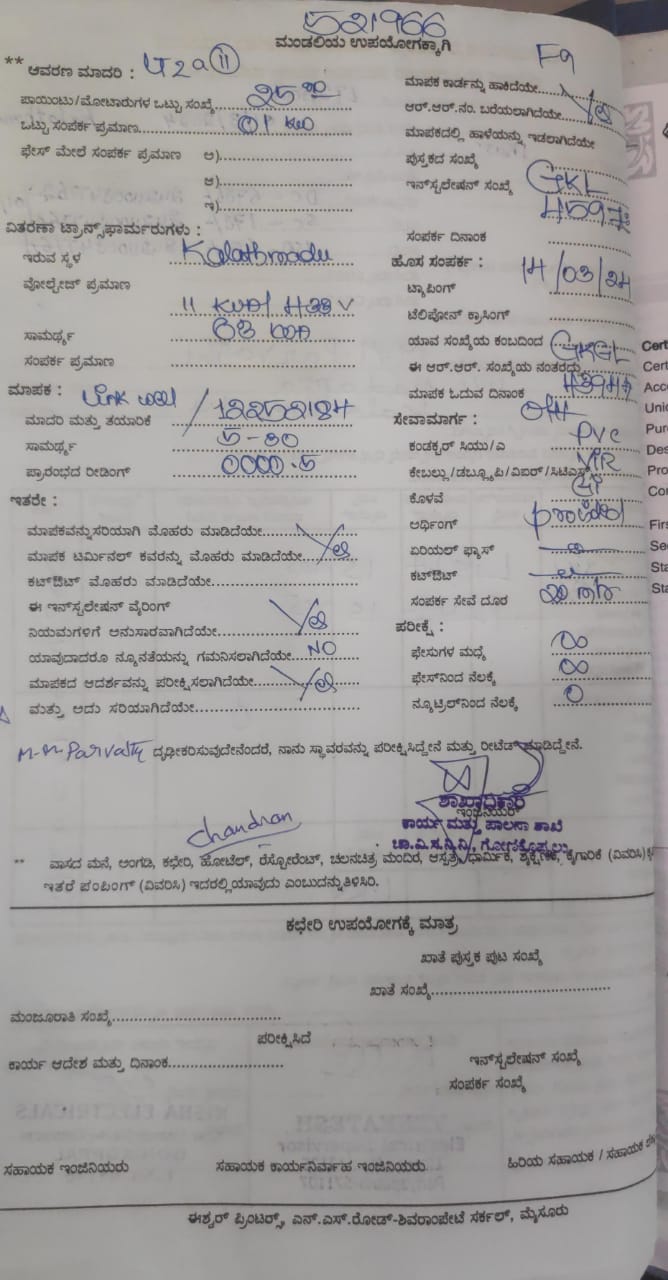 521966
ಮಂಡಲಿಯ ಉಪಯೋಗಕ್ಕಾಗಿ
F9
** ಆವರಣ ಮಾದರಿ : LT2a(ii)
ಪಾಯಿಂಟು/ಮೋಟಾರುಗಳ ಒಟ್ಟು ಸಂಖ್ಯೆ 25
ಒಟ್ಟು ಸಂಪರ್ಕ ಪ್ರಮಾಣ 01 KW
ಫೇಸ್ ಮೇಲೆ ಸಂಪರ್ಕ ಪ್ರಮಾಣ ಅ)
ಆ)
ಇ)
ವಿತರಣಾ ಟ್ರಾನ್ಸ್‌ಫಾರ್ಮರುಗಳು :
ಇರುವ ಸ್ಥಳ Kalathmadu
ವೋಲ್ಟೇಜ್ ಪ್ರಮಾಣ
11 KV/433 V
ಸಾಮರ್ಥ್ಯ 63 KVA
ಸಂಪರ್ಕ ಪ್ರಮಾಣ
ಮಾಪಕ : Link well /
ಮಾದರಿ ಮತ್ತು ತಯಾರಿಕೆ 12252184
ಸಾಮರ್ಥ್ಯ 5-30
ಪ್ರಾರಂಭದ ರೀಡಿಂಗ್ 0000.5
ಇತರೇ :
ಮಾಪಕವನ್ನು ಸರಿಯಾಗಿ ಮೊಹರು ಮಾಡಿದೆಯೇ
ಮಾಪಕ ಟರ್ಮಿನಲ್ ಕವರನ್ನು ಮೊಹರು ಮಾಡಿದೆಯೇ Yes
ಕಟ್‌ಔಟ್ ಮೊಹರು ಮಾಡಿದೆಯೇ
ಈ ಇನ್‌ಸ್ಟಲೇಷನ್ ವೈರಿಂಗ್
ನಿಯಮಗಳಿಗೆ ಅನುಸಾರವಾಗಿದೆಯೇ Yes
ಯಾವುದಾದರೂ ನ್ಯೂನತೆಯನ್ನು ಗಮನಿಸಲಾಗಿದೆಯೇ NO
ಮಾಪಕದ ಆದರ್ಶವನ್ನು ಪರೀಕ್ಷಿಸಲಾಗಿದೆಯೇ Yes
ಮತ್ತು ಅದು ಸರಿಯಾಗಿದೆಯೇ
ಮಾಪಕ ಕಾರ್ಡನ್ನು ಹಾಕಿದೆಯೇ
ಆರ್.ಆರ್.ನಂ. ಬರೆಯಲಾಗಿದೆಯೇ Yes
ಮಾಪಕದಲ್ಲಿ ಹಾಳೆಯನ್ನು ಇಡಲಾಗಿದೆಯೇ
ಪುಸ್ತಕದ ಸಂಖ್ಯೆ
ಇನ್‌ಸ್ಟಲೇಷನ್ ಸಂಖ್ಯೆ GKL
ಸಂಪರ್ಕ ದಿನಾಂಕ
ಹೊಸ ಸಂಪರ್ಕ : 14/03/24
ಟ್ಯಾಪಿಂಗ್
ಟೆಲಿಫೋನ್ ಕ್ರಾಸಿಂಗ್
ಯಾವ ಸಂಖ್ಯೆಯ ಕಂಬದಿಂದ
ಈ ಆರ್.ಆರ್. ಸಂಖ್ಯೆಯ ನಂತರದ್ದು
ಮಾಪಕ ಓದುವ ದಿನಾಂಕ
ಸೇವಾಮಾರ್ಗ : OH
ಕಂಡಕ್ಟರ್ ಸಿಯು/ಎ PVC
ಕೇಬಲ್ಲು/ಡಬ್ಲ್ಯೂಪಿ/ವಿಐರ್/ಸಿಟಿಎಸ್ VIR
ಕೊಳವೆ GI
ಅರ್ಥಿಂಗ್ provided
ಏರಿಯಲ್ ಫ್ಯೂಸ್
ಕಟ್‌ಔಟ್
ಸಂಪರ್ಕ ಸೇವೆ ದೂರ
ಪರೀಕ್ಷೆ :
ಫೇಸುಗಳ ಮಧ್ಯೆ ∞
ಫೇಸ್‌ನಿಂದ ನೆಲಕ್ಕೆ ∞
ನ್ಯೂಟ್ರಿಲ್‌ನಿಂದ ನೆಲಕ್ಕೆ 0
M.M Parvathy ದೃಢೀಕರಿಸುವುದೇನೆಂದರೆ, ನಾನು ಸ್ಥಾವರವನ್ನು ಪರೀಕ್ಷಿಸಿದ್ದೇನೆ ಮತ್ತು ರೀಟೆಡ್ ಮಾಡಿದ್ದೇನೆ.
ಶಾಖಾಧಿಕಾರಿ
ಇಂಜಿನಿಯರ್
chandran
ಕಾರ್ಯ ಮತ್ತು ಪಾಲನಾ ಶಾಖೆ
ಚಾ.ವಿ.ಸ.ನಿ.ನಿ, ಗೋಣಿಕೊಪ್ಪಲು
** ವಾಸದ ಮನೆ, ಅಂಗಡಿ, ಕಛೇರಿ, ಹೋಟೆಲ್, ರೆಸ್ಟೋರೆಂಟ್, ಚಲನಚಿತ್ರ ಮಂದಿರ, ಆಸ್ಪತ್ರೆ, ಧಾರ್ಮಿಕ, ಶೈಕ್ಷಣಿಕ, ಕೈಗಾರಿಕೆ (ವಿವರಿಸಿ)
ಇತರೆ ಪಂಪಿಂಗ್ (ವಿವರಿಸಿ) ಇದರಲ್ಲಿ ಯಾವುದು ಎಂಬುದನ್ನು ತಿಳಿಸಿರಿ.
ಕಛೇರಿ ಉಪಯೋಗಕ್ಕೆ ಮಾತ್ರ
ಖಾತೆ ಪುಸ್ತಕ ಪುಟ ಸಂಖ್ಯೆ
ಖಾತೆ ಸಂಖ್ಯೆ
ಮಂಜೂರಾತಿ ಸಂಖ್ಯೆ
ಪರೀಕ್ಷಿಸಿದೆ
ಕಾರ್ಯ ಆದೇಶ ಮತ್ತು ದಿನಾಂಕ
ಇನ್‌ಸ್ಟಲೇಷನ್ ಸಂಖ್ಯೆ
ಸಂಪರ್ಕ ಸಂಖ್ಯೆ
ಸಹಾಯಕ ಇಂಜಿನಿಯರು ಸಹಾಯಕ ಕಾರ್ಯನಿರ್ವಾಹ ಇಂಜಿನಿಯರು ಹಿರಿಯ ಸಹಾಯಕ / ಸಹಾಯಕ
ಈಶ್ವರ್ ಪ್ರಿಂಟರ್ಸ್, ಎನ್.ಎಸ್.ರೋಡ್-ಶಿವರಾಂಪೇಟೆ ಸರ್ಕಲ್, ಮೈಸೂರು